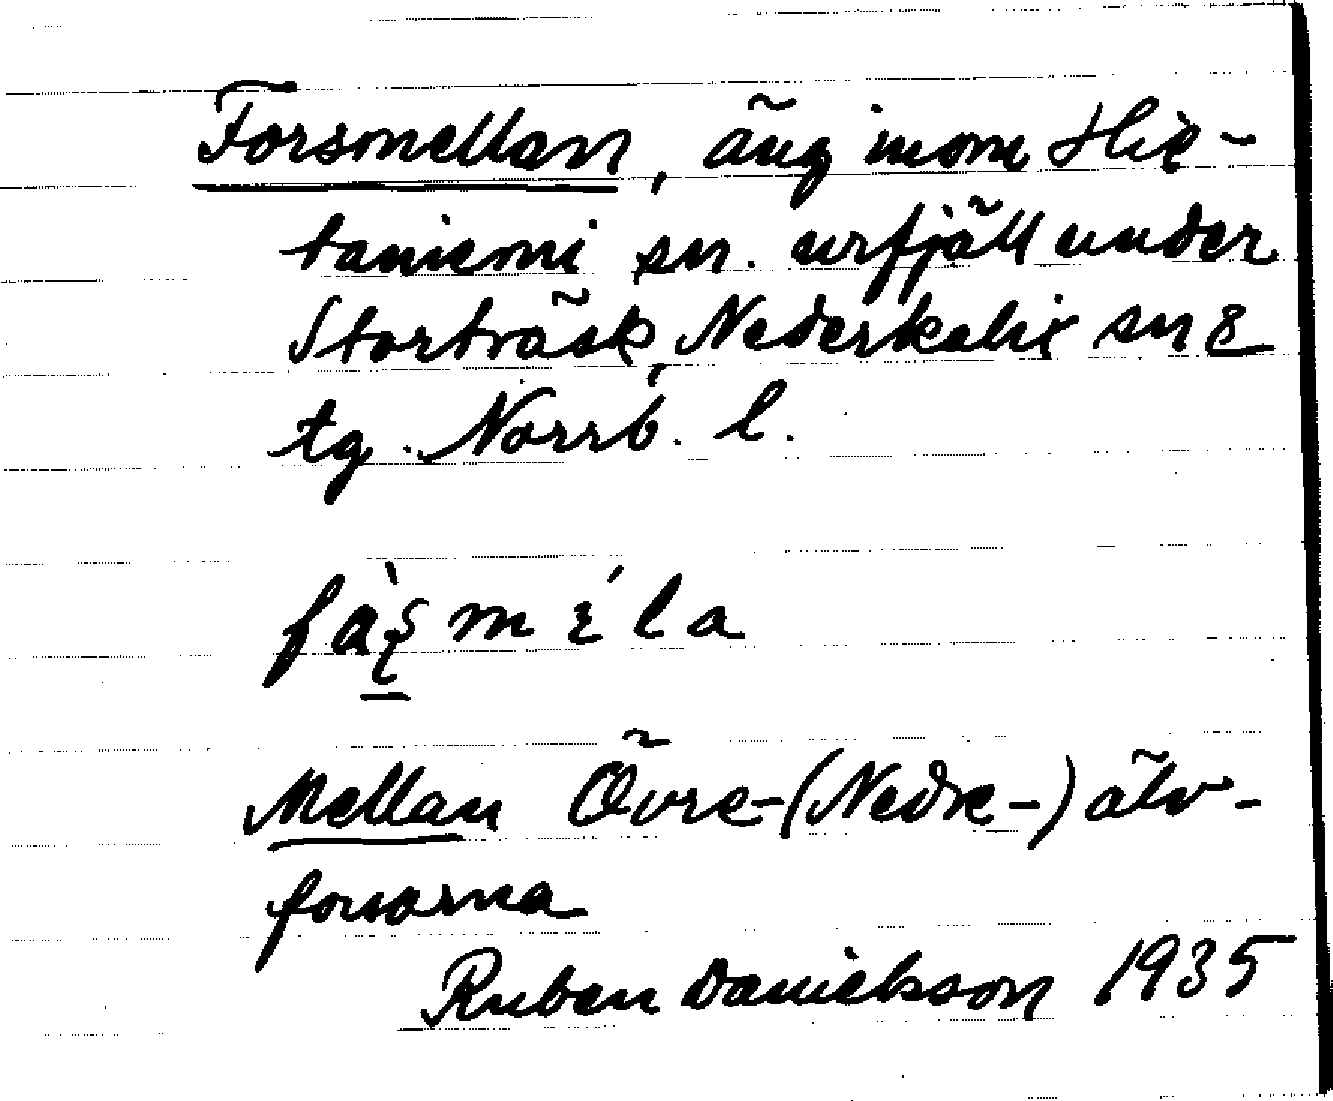 Forsmellan, äng inom Hie-
taniemi sn. urfjäll under
Storträsk, Nederkalix sn &
tg. Norrb. l.
Mellan Övre-(Nedre-) älv-
forsarna
Ruben Danielsson 1935